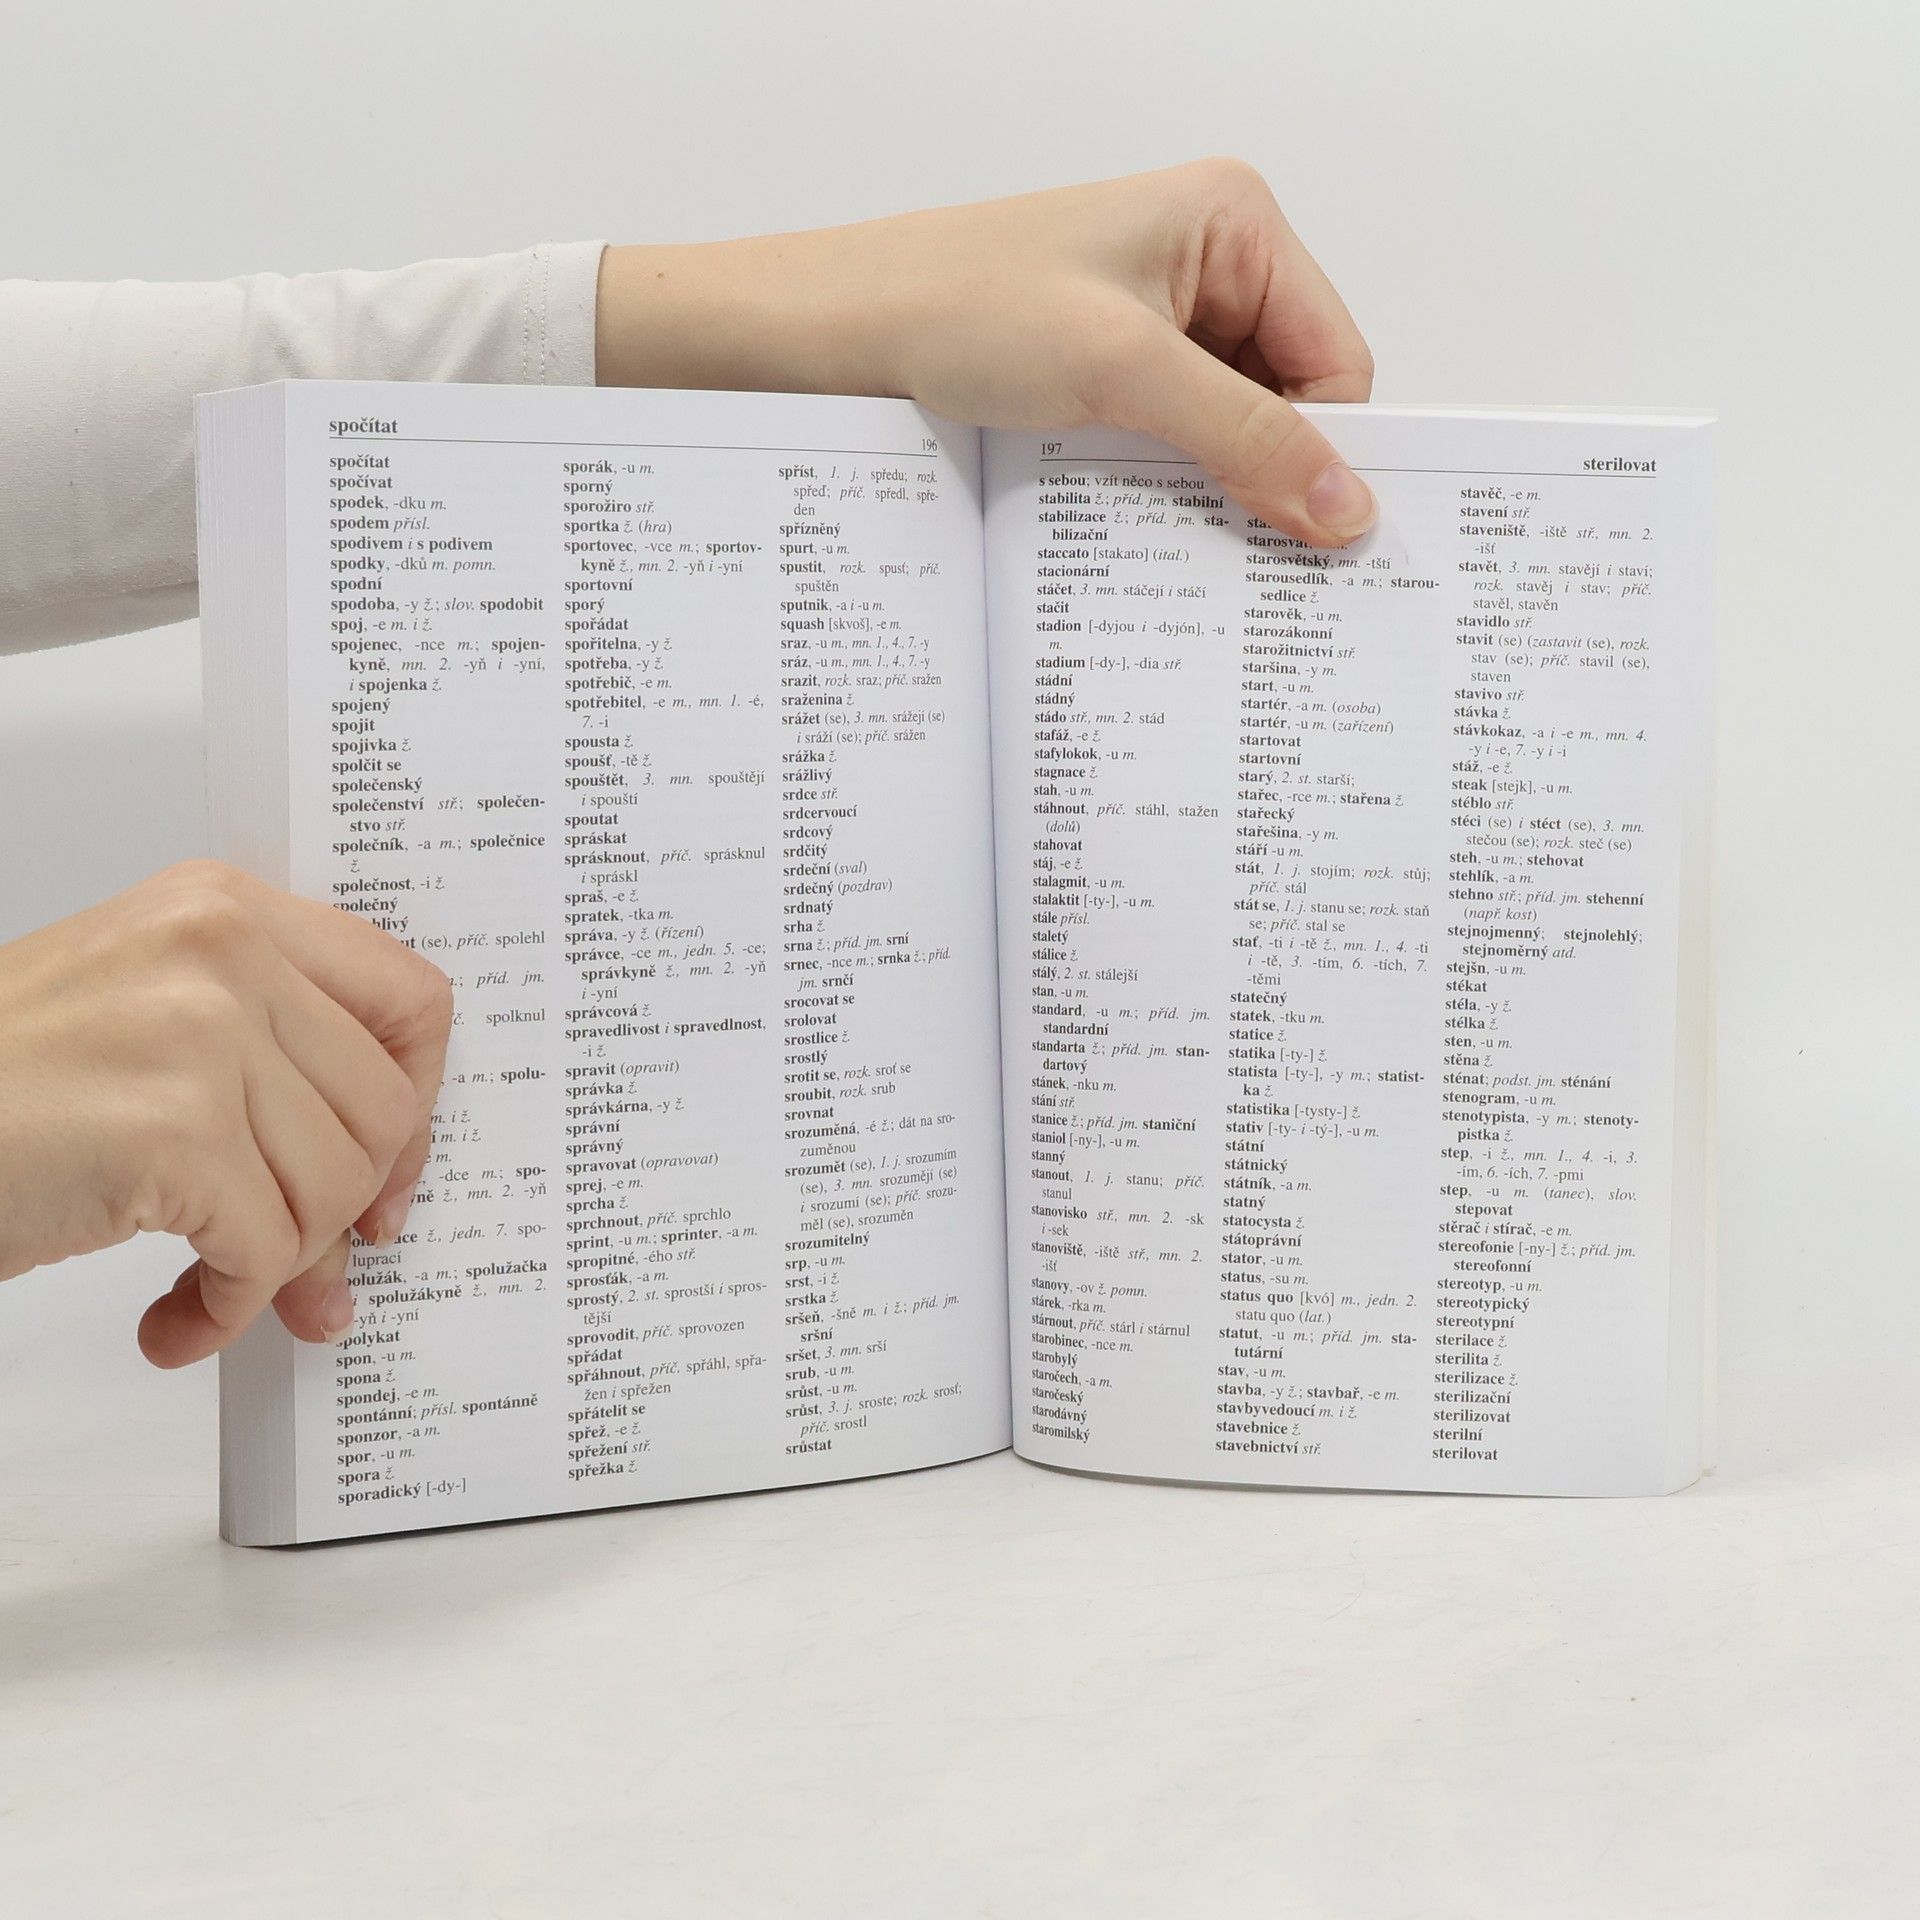 spočítat
196
spočítat
spočívat
spodek, -dku m.
spodem přísl.
spodivem i s podivem
spodky, -dků m. pomn.
spodní
spodoba, -y ž.; slov. spodobit
spoj, -e m. i ž.
spojenec, -nce m.; spojen-
kyně, mn. 2. -yň i -yní,
i spojenka ž.
spojený
spojit
spojivka ž.
spolčit se
společenský
společenství stř.; společen-
stvo stř.
společník, -a m.; společnice
ž.
společnost, -i ž.
společný
(se), příč. spolehl
příd. jm.
spolknul
-a m.; spolu-
m. i ž.
m. i ž.
m.
-dce m.; spo-
mn. 2. -yň
ž., jedn. 7. spo-
luprací
-a m.; spolužačka
i spolužákyně ž., mn. 2.
-yň i -yní
spolykat
spon, -u m.
spona ž.
spondej, -e m.
spontánní; přísl. spontánně
sponzor, -a m.
spor, -u m.
spora ž.
sporadický [-dy-]
sporák, -u m.
sporný
sporožiro stř.
sportka ž. (hra)
sportovec, -vce m.; sportov-
kyně ž., mn. 2. -yň i -yní
sportovní
sporý
spořádat
spořitelna, -y ž.
spotřeba, -y ž.
spotřebič, -e m.
spotřebitel, -e m., mn. 1. -é,
7. -i
spousta ž.
spoušť, -tě ž.
spouštět, 3. mn. spouštějí
i spouští
spoutat
spráskat
sprásknout, příč. sprásknul
i spráskl
spraš, -e ž.
spratek, -tka m.
správa, -y ž. (řízení)
správce, -ce m., jedn. 5. -ce;
správkyně ž., mn. 2. -yň
i -yní
správcová ž.
spravedlivost i spravedlnost,
-i ž.
spravit (opravit)
správka ž.
správkárna, -y ž.
správní
správný
spravovat (opravovat)
sprej, -e m.
sprcha ž.
sprchnout, příč. sprchlo
sprint, -u m.; sprinter, -a m.
spropitné, -ého stř.
sprosťák, -a m.
sprostý, 2. st. sprostší i spros-
tější
sprovodit, příč. sprovozen
spřádat
spřáhnout, příč. spřáhl, spřa-
žen i spřežen
spřátelit se
spřež, -e ž.
spřežení stř.
spřežka ž.
spříst, 1. j. spředu; rozk.
spřeď; příč. spředl, spře-
den
spřízněný
spurt, -u m.
spustit, rozk. spusť; příč.
spuštěn
sputnik, -a i -u m.
squash [skvoš], -e m.
sraz, -u m., mn. 1., 4., 7. -y
sráz, -u m., mn. 1., 4., 7. -y
srazit, rozk. sraz; příč. sražen
sraženina ž.
srážet (se), 3. mn. srážejí (se)
i sráží (se); příč. srážen
srážka ž.
srážlivý
srdce stř.
srdcervoucí
srdcový
srdčitý
srdeční (sval)
srdečný (pozdrav)
srdnatý
srha ž.
srna ž.; příd. jm. srní
srnec, -nce m.; srnka ž.; příd.
jm. srnčí
srocovat se
srolovat
srostlice ž.
srostlý
srotit se, rozk. sroť se
sroubit, rozk. srub
srovnat
srozuměná, -é ž.; dát na sro-
zuměnou
srozumět (se), 1. j. srozumím
(se), 3. mn. srozumějí (se)
i srozumí (se); příč. srozu-
měl (se), srozuměn
srozumitelný
srp, -u m.
srst, -i ž.
srstka ž.
sršeň, -šně m. i ž.; příd. jm.
sršní
sršet, 3. mn. srší
srub, -u m.
srůst, -u m.
srůst, 3. j. sroste; rozk. srosť;
příč. srostl
srůstat
197
sterilovat
s sebou; vzít něco s sebou
stabilita ž.; příd. jm. stabilní
stabilizace ž.; příd. jm. sta-
bilizační
staccato [stakato] (ital.)
stacionární
stáčet, 3. mn. stáčejí i stáčí
stačit
stadion [-dyjou i -dyjón], -u
m.
stadium [-dy-], -dia stř.
stádní
stádný
stádo stř., mn. 2. stád
stafáž, -e ž.
stafylokok, -u m.
stagnace ž.
stah, -u m.
stáhnout, příč. stáhl, stažen
(dolů)
stahovat
stáj, -e ž.
stalagmit, -u m.
stalaktit [-ty-], -u m.
stále přísl.
staletý
stálice ž.
stálý, 2. st. stálejší
stan, -u m.
standard, -u m.; příd. jm.
standardní
standarta ž.; příd. jm. stan-
dartový
stánek, -nku m.
stání stř.
stanice ž.; příd. jm. staniční
staniol [-ny-], -u m.
stanný
stanout, 1. j. stanu; příč.
stanul
stanovisko stř., mn. 2. -sk
i -sek
stanoviště, -iště stř., mn. 2.
-išť
stanovy, -ov ž. pomn.
stárek, -rka m.
stárnout, příč. stárl i stárnul
starobinec, -nce m.
starobylý
staročech, -a m.
staročeský
starodávný
staromilský
starosvat,
starosvětský, mn. -tští
starousedlík, -a m.; starou-
sedlice ž.
starověk, -u m.
starozákonní
starožitnictví stř.
staršina, -y m.
start, -u m.
startér, -a m. (osoba)
startér, -u m. (zařízení)
startovat
startovní
starý, 2. st. starší;
stařec, -rce m.; stařena ž.
stařecký
stařešina, -y m.
stáří -u m.
stát, 1. j. stojím; rozk. stůj;
příč. stál
stát se, 1. j. stanu se; rozk. staň
se; příč. stal se
stať, -ti i -tě ž., mn. 1., 4. -ti
i -tě, 3. -tím, 6. -tích, 7.
-těmi
statečný
statek, -tku m.
statice ž.
statika [-ty-] ž.
statista [-ty-], -y m.; statist-
ka ž.
statistika [-tysty-] ž.
stativ [-ty- i -tý-], -u m.
státní
státnický
státník, -a m.
statný
statocysta ž.
státoprávní
stator, -u m.
status, -su m.
status quo [kvó] m., jedn. 2.
statu quo (lat.)
statut, -u m.; příd. jm. sta-
tutární
stav, -u m.
stavba, -y ž.; stavbař, -e m.
stavbyvedoucí m. i ž.
stavebnice ž.
stavebnictví stř.
stavěč, -e m.
stavení stř.
staveniště, -iště stř., mn. 2.
-išť
stavět, 3. mn. stavějí i staví;
rozk. stavěj i stav; příč.
stavěl, stavěn
stavidlo stř.
stavit (se) (zastavit (se), rozk.
stav (se); příč. stavil (se),
staven
stavivo stř.
stávka ž.
stávkokaz, -a i -e m., mn. 4.
-y i -e, 7. -y i -i
stáž, -e ž.
steak [stejk], -u m.
stéblo stř.
stéci (se) i stéct (se), 3. mn.
stečou (se); rozk. steč (se)
steh, -u m.; stehovat
stehlík, -a m.
stehno stř.; příd. jm. stehenní
(např. kost)
stejnojmenný; stejnolehlý;
stejnoměrný atd.
stejšn, -u m.
stékat
stéla, -y ž.
stélka ž.
sten, -u m.
stěna ž.
sténat; podst. jm. sténání
stenogram, -u m.
stenotypista, -y m.; stenoty-
pistka ž.
step, -i ž., mn. 1., 4. -i, 3.
-ím, 6. -ích, 7. -pmi
step, -u m. (tanec), slov.
stepovat
stěrač i stírač, -e m.
stereofonie [-ny-] ž.; příd. jm.
stereofonní
stereotyp, -u m.
stereotypický
stereotypní
sterilace ž.
sterilita ž.
sterilizace ž.
sterilizační
sterilizovat
sterilní
sterilovat